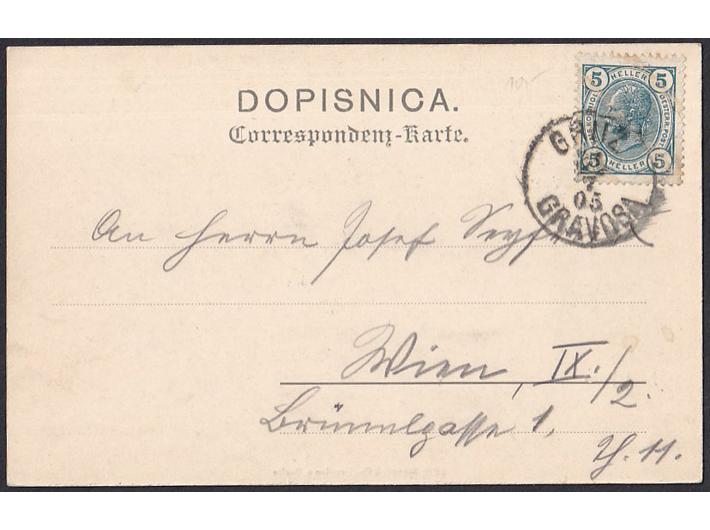 105
5 HELLER 5
5 HELLER 5
DOPISNICA.
Correspondenz-Karte.
7
05
GRAVOSA
An Herrn Josef
Wien, IX./2.
Brünnlgasse 1.
11.